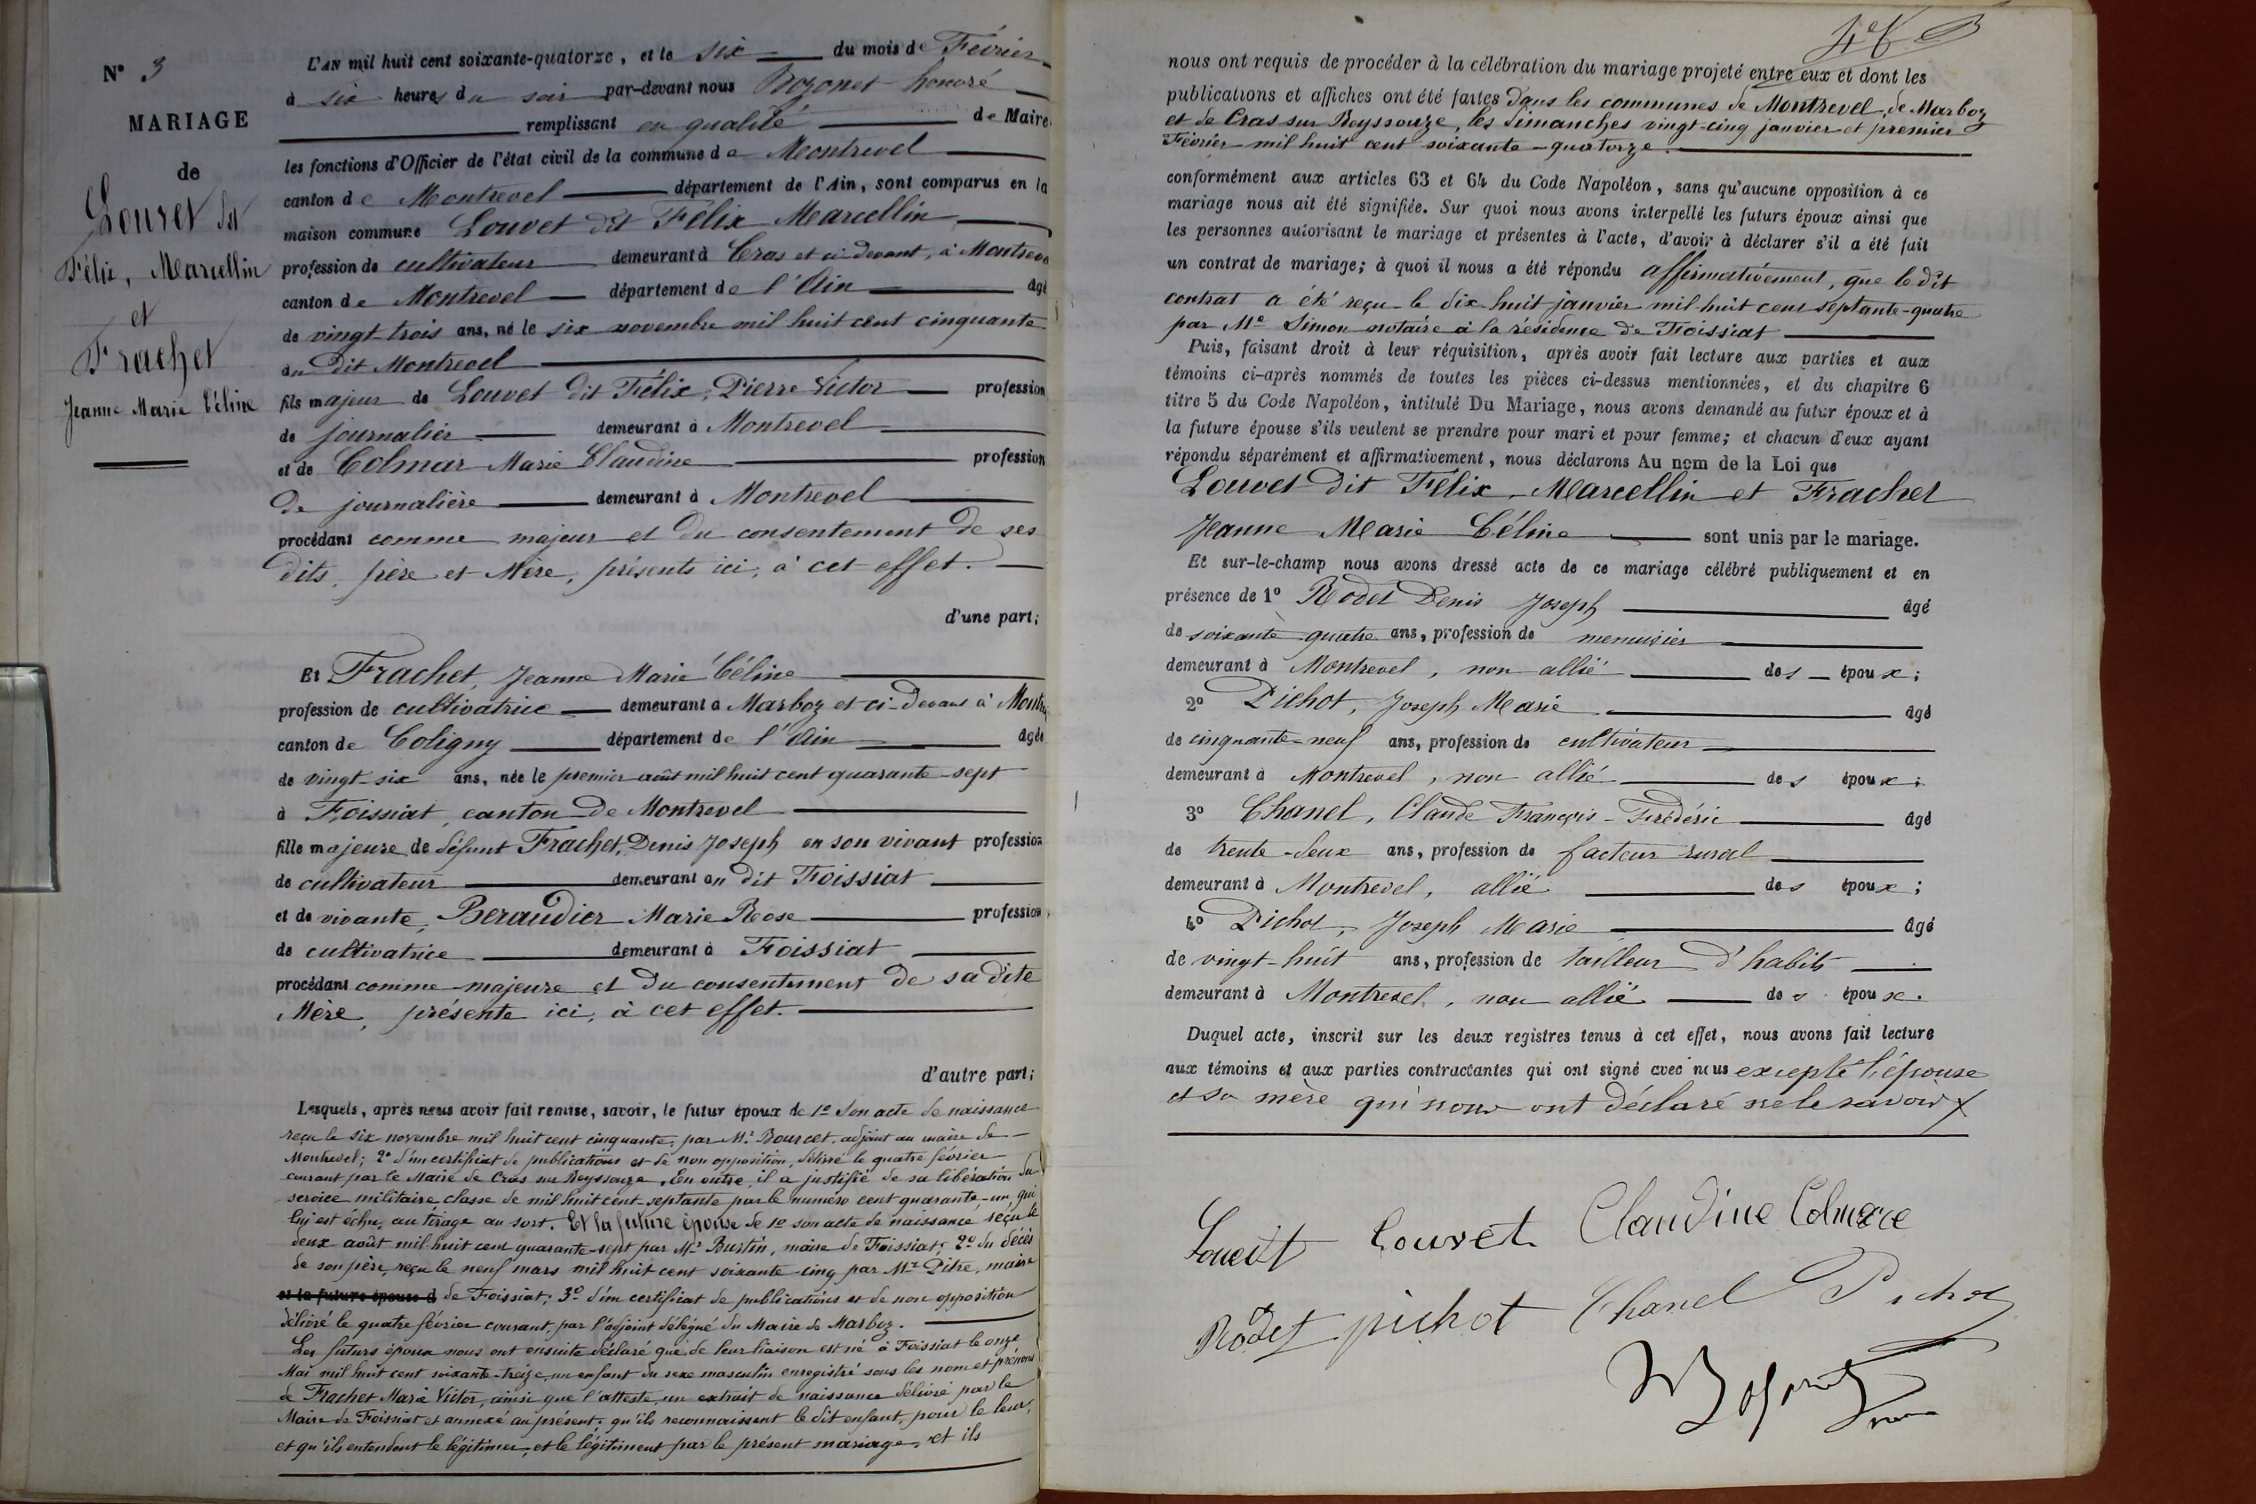 N° 3
MARIAGE
de
Louvet dit
Félix, Marcellin
et
Frachet
Jeanne Marie Céline
L'AN mil huit cent soixante-quatorze, et le six du mois de Février
à six heures du soir par-devant nous Bozonet honoré
remplissant en qualité de Maire
les fonctions d'Officier de l'état civil de la commune de Montrevel
canton de Montrevel département de l'Ain, sont comparus en la
maison commune Louvet dit Félix Marcellin
profession de cultivateur demeurant à Cras et ci-devant, à Montrevel
canton de Montrevel département de l'Ain âgé
de vingt-trois ans, né le six novembre mil huit cent cinquante
au dit Montrevel
fils majeur de Louvet dit Félix, Pierre Victor profession
de journalier demeurant à Montrevel
et de Colmar Marie Claudine profession
de journalière demeurant à Montrevel
procédant comme majeur et du consentement de ses
dits, père et Mère, présents ici, à cet effet.
d'une part;
Et Frachet, Jeanne Marie Céline
profession de cultivatrice demeurant à Marboz et ci-devant à Montre
canton de Coligny département de l'Ain âgée
de vingt-six ans, née le premier août mil huit cent quarante-sept
à Foissiat, canton de Montrevel
fille majeure de défunt Frachet, Denis Joseph en son vivant profession
de cultivateur demeurant au dit Foissiat
et de vivante, Beraudier Marie Rose profession
de cultivatrice demeurant à Foissiat
procédant comme majeure et du consentement de sa dite
Mère, présente ici, à cet effet.
d'autre part;
Lesquels, après nous avoir fait remise, savoir, le futur époux de 1° son acte de naissance
reçu le six novembre mil huit cent cinquante, par Mr Bourcet, adjoint au maire de
Montrevel; 2° d'un certificat de publications et de non opposition, délivré le quatre février
courant par le Maire de Cras sur Reyssouze, En outre, il a justifié de sa libération du
service militaire classe de mil huit cent septante par le numéro cent quarante-un qui
lui est échu, au tirage au sort. Et la future épouse de 1° son acte de naissance reçu le
deux août mil huit cent quarante-sept par Mr Burtin, maire de Foissiat; 2° du décès
de son père, reçu le neuf mars mil huit cent soixante-cinq par Mr Pitre, maire
et la future épouse d de Foissiat; 3° d'un certificat de publications et de non opposition
délivré le quatre février courant, par l'adjoint délégué du Maire de Marboz.
Les futurs époux nous ont ensuite déclaré que de leur liaison est né à Foissiat le onze
Mai mil huit cent soixante-treize, un enfant du sexe masculin enregistré sous les nom et prénoms
de Frachet Marie Victor, ainsi que l'atteste, un extrait de naissance délivré par le
Maire de Foissiat et annexé au présent, qu'ils reconnaissent le dit enfant, pour le leur,
et qu'ils entendent le légitimer, et le légitiment par le présent mariage, et ils
nous ont requis de procéder à la célébration du mariage projeté entre eux et dont les
publications et affiches ont été faites dans les communes de Montrevel, de Marboz
et de Cras sur Reyssouze, les dimanches vingt-cinq janvier et premier
Février mil huit cent soixante-quatorze.
conformément aux articles 63 et 64 du Code Napoléon, sans qu'aucune opposition à ce
mariage nous ait été signifiée. Sur quoi nous avons interpellé les futurs époux ainsi que
les personnes autorisant le mariage et présentes à l'acte, d'avoir à déclarer s'il a été fait
un contrat de mariage; à quoi il nous a été répondu affirmativement, que le dit
contrat a été reçu le dix-huit janvier mil huit cent septante-quatre
par Me Simon notaire à la résidence de Foissiat
Puis, faisant droit à leur réquisition, après avoir fait lecture aux parties et aux
témoins ci-après nommés de toutes les pièces ci-dessus mentionnées, et du chapitre 6
titre 5 du Code Napoléon, intitulé Du Mariage, nous avons demandé au futur époux et à
la future épouse s'ils veulent se prendre pour mari et pour femme; et chacun d'eux ayant
répondu séparément et affirmativement, nous déclarons Au nom de la Loi que
Louvet dit Félix, Marcellin et Frachet
Jeanne Marie Céline sont unis par le mariage.
Et sur-le-champ nous avons dressé acte de ce mariage célébré publiquement et en
présence de 1° Rodet Denis Joseph âgé
de soixante quatre ans, profession de menuisier
demeurant à Montrevel, non allié des époux;
2° Pichot, Joseph Marie âgé
de cinquante-neuf ans, profession de cultivateur
demeurant à Montrevel, non allié des époux;
3° Chanel, Claude François-Frédéric âgé
de trente-deux ans, profession de facteur rural
demeurant à Montrevel, allié des époux;
4° Pichot, Joseph Marie âgé
de vingt-huit ans, profession de tailleur d'habits
demeurant à Montrevel, non allié des époux.
Duquel acte, inscrit sur les deux registres tenus à cet effet, nous avons fait lecture
aux témoins et aux parties contractantes qui ont signé avec nous excepté l'épouse
et sa mère qui nous ont déclaré ne le savoir
Louvet Claudine Colmare
Rodet pichot Chanel Pichot